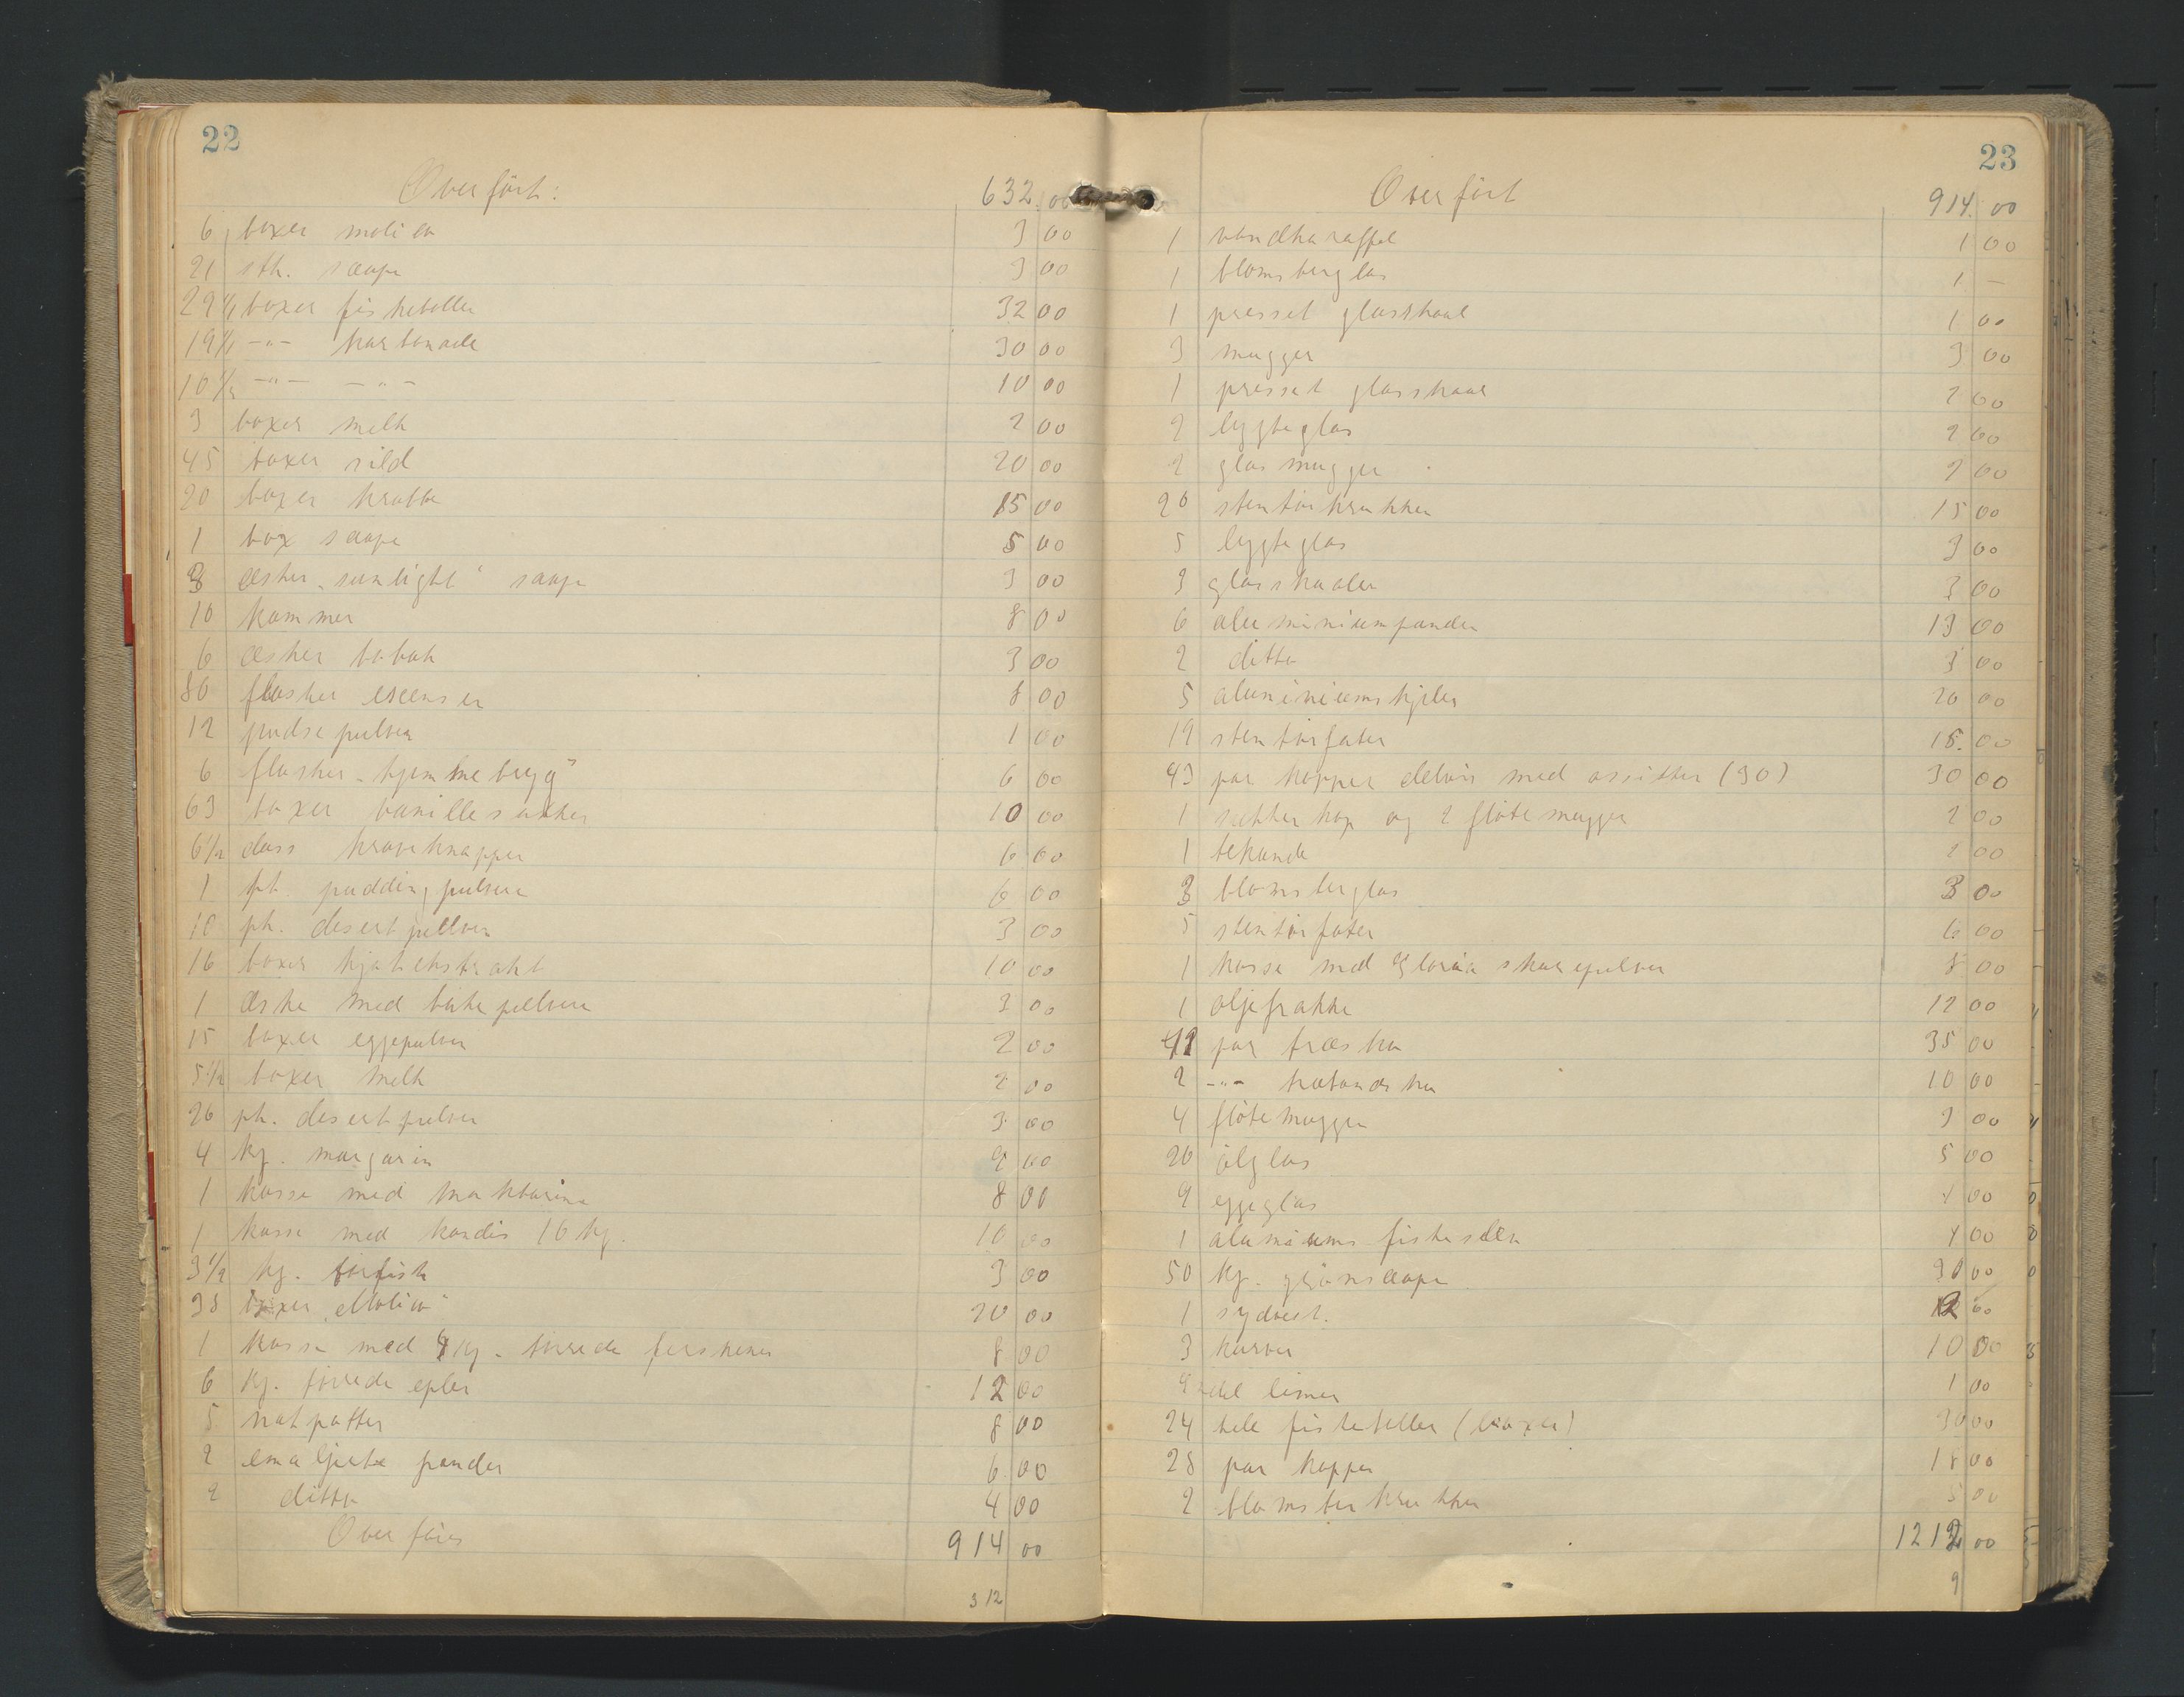 22
Overført: 632 00
6 boxer molico 3 00
21 stk. sæape 3 00
29 1/1 boxer fiskeboller 32 00
19 1/1 -"- karbonade 30 00
10 1/2 -"- -"- 10 00
3 boxer melk 2 00
45 boxer sild 20 00
20 boxer krabbe 15 00
1 box sæape 5 00
3 æsker "sunlight" sæape 3 00
10 kammer 8 00
6 æsker tobak 3 00
80 flasker escenser 8 00
12 pudsepulver 1 00
6 flasker "hjemmebrygg" 6 00
63 boxer vanillesukker 10 00
6 1/2 duss kraveknapper 6 00
1 pk. puddingpulver 6 00
10 pk. desertpullver 3 00
16 boxer kjøtekstrakt 10 00
1 æske med bakepulver 3 00
15 boxer eggepulver 2 00
5 1/2 boxer melk 2 00
26 pk. desertpulver 3 00
4 kg. margarin 2 00
1 kasse med 8 00
1 kasse med kandis 16 kg. 10 00
3 1/2 kg. tørfisk 3 00
38 boxer "Molico" 20 00
1 kasse med 4 kg. tørrede ferskener 8 00
6 kg. tørrede epler 12 00
5 natpotter 8 00
2 emaljerte pander 6 00
2 ditto 4 00
Overføres 914 00
312
23
Overført 914 00
1 vandkaraffel 1 00
1 blomsterglas 1 -
1 presset glasskaal 1 00
3 mugger 3 00
1 presset glasskaal 2 00
2 lygteglas 2 00
2 glasmugger 2 00
20 stentøikrukker 15 00
5 lygteglas 3 00
3 glasskaaler 3 00
6 aluminiumpander 13 00
2 ditto 3 00
5 aluminiumskjeler 20 00
19 stentøifater 15 00
43 par kopper delvis med assietter (30) 30 00
1 sukkerkop og 2 fløtemugger 2 00
1 tekande 2 00
3 blomsterglas 3 00
5 stentøifater 6 00
1 kasse med Gloria skurepulver 8 00
1 oljefrakke 12 00
41 par træsko 35 00
2 -"- træbundsko 10 00
4 fløtemugger 3 00
20 ølglas 5 00
9 eggeglas 1 00
1 00
50 kg. grønsæape 30 00
1 sydvest. 2 00
3 kurver 10 00
9 del limer 1 00
24 hele fiskeboller (boxer) 30 00
28 par kopper 18 00
2 blomsterkrukker 5 00
1212 00
9